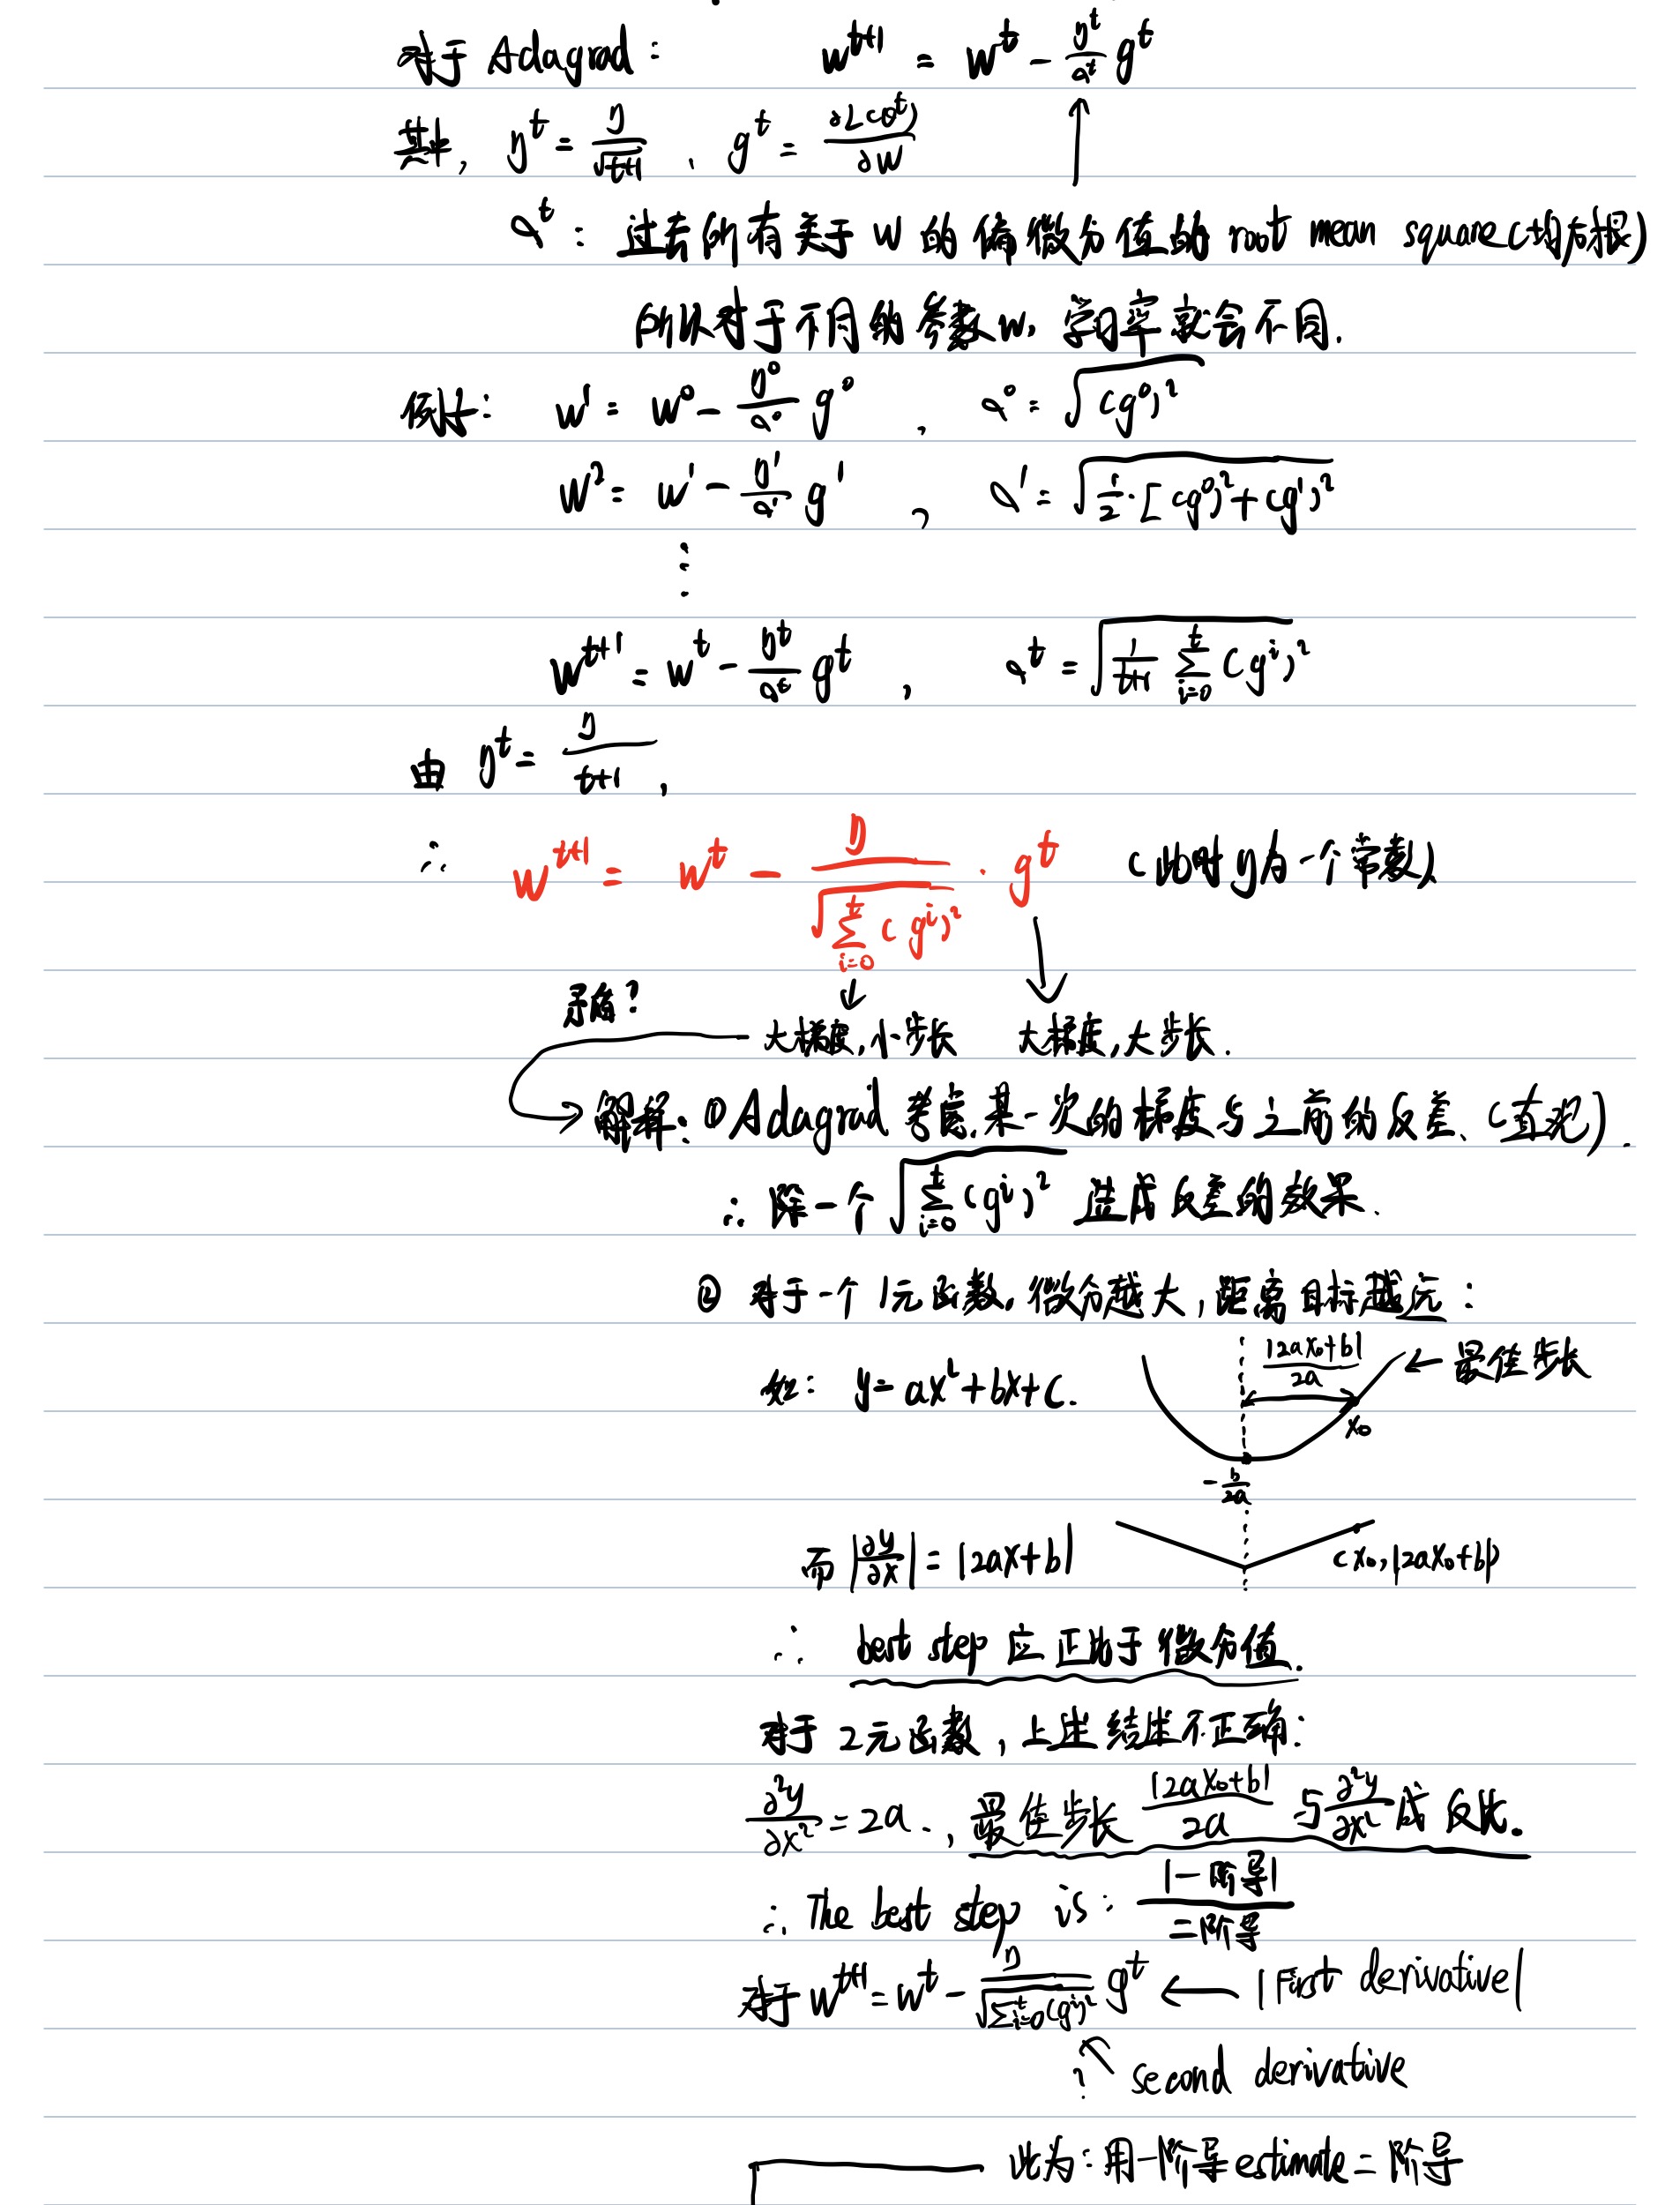 对于 Adagrad： w^{t+1} = w^t - \frac{η^t}{σ^t} g^t
其中, η^t = \frac{η}{\sqrt{t+1}} 、 g^t = \frac{∂L(θ^t)}{∂w}
σ^t： 过去所有关于 w 的偏微分值的 root mean square (均方根)
所以对于不同的参数w，学习率就会不同.
例如： w^1 = w^0 - \frac{η^0}{σ^0} g^0 , σ^0 = \sqrt{(g^0)^2}
w^2 = w^1 - \frac{η^1}{σ^1} g^1 , σ^1 = \sqrt{\frac{1}{2}·[(g^0)^2+(g^1)^2}
⋮
w^{t+1} = w^t - \frac{η^t}{σ^t} g^t , σ^t = \sqrt{\frac{1}{t+1} \sum_{i=0}^{t} (g^i)^2}
由 η^t = \frac{η}{t+1} ,
∴ w^{t+1} = w^t - \frac{η}{\sqrt{\sum_{i=0}^{t} (g^i)^2}} · g^t (此时 η为一个常数)
矛盾?
大梯度,小步长 大梯度,大步长.
解释：① Adagrad 考虑,某一次的梯度与之前的反差、(直观).
∴ 除一个 \sqrt{\sum_{i=0}^{t} (g^i)^2} 造成反差的效果.
② 对于一个 1元函数，微分越大，距离目标越远：
\frac{|2ax_0+b|}{2a} ← 最佳步长
如： y = ax^2+bx+c.
x_0
-\frac{b}{2a}
而 |\frac{∂y}{∂x}| = |2ax+b| (x_0,|2ax_0+b|)
∴ best step 应正比于微分值.
对于 2元函数，上述结述不正确：
\frac{∂^2y}{∂x^2} = 2a . , 最佳步长 \frac{|2ax_0+b|}{2a} 与 \frac{∂^2y}{∂x^2} 成反比.
∴ The best step is： \frac{|一阶导|}{二阶导}
对于 w^{t+1} = w^t - \frac{η}{\sqrt{\sum_{i=0}^{t}(g^i)^2}} g^t ← |First derivative|
? second derivative
此为：用一阶导 estimate 二阶导